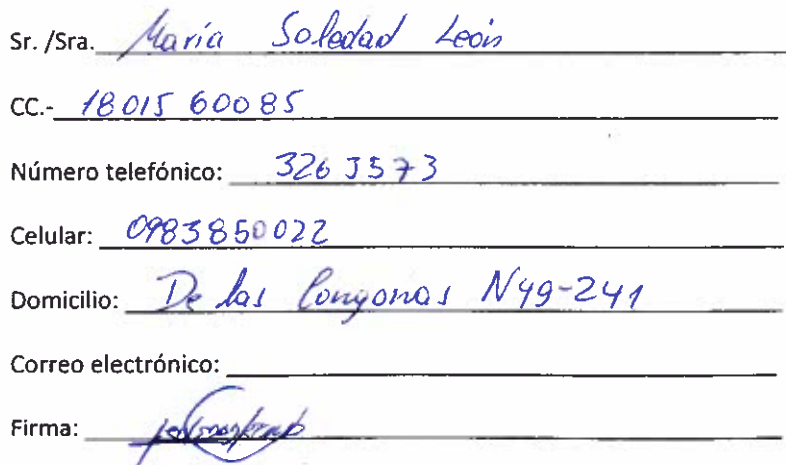 Sr. /Sra. María Soledad León
CC.- 18015 60085
Número telefónico: 3263573
Celular: 0983850022
Domicilio: De las Congonas N49-241
Correo electrónico:
Firma: